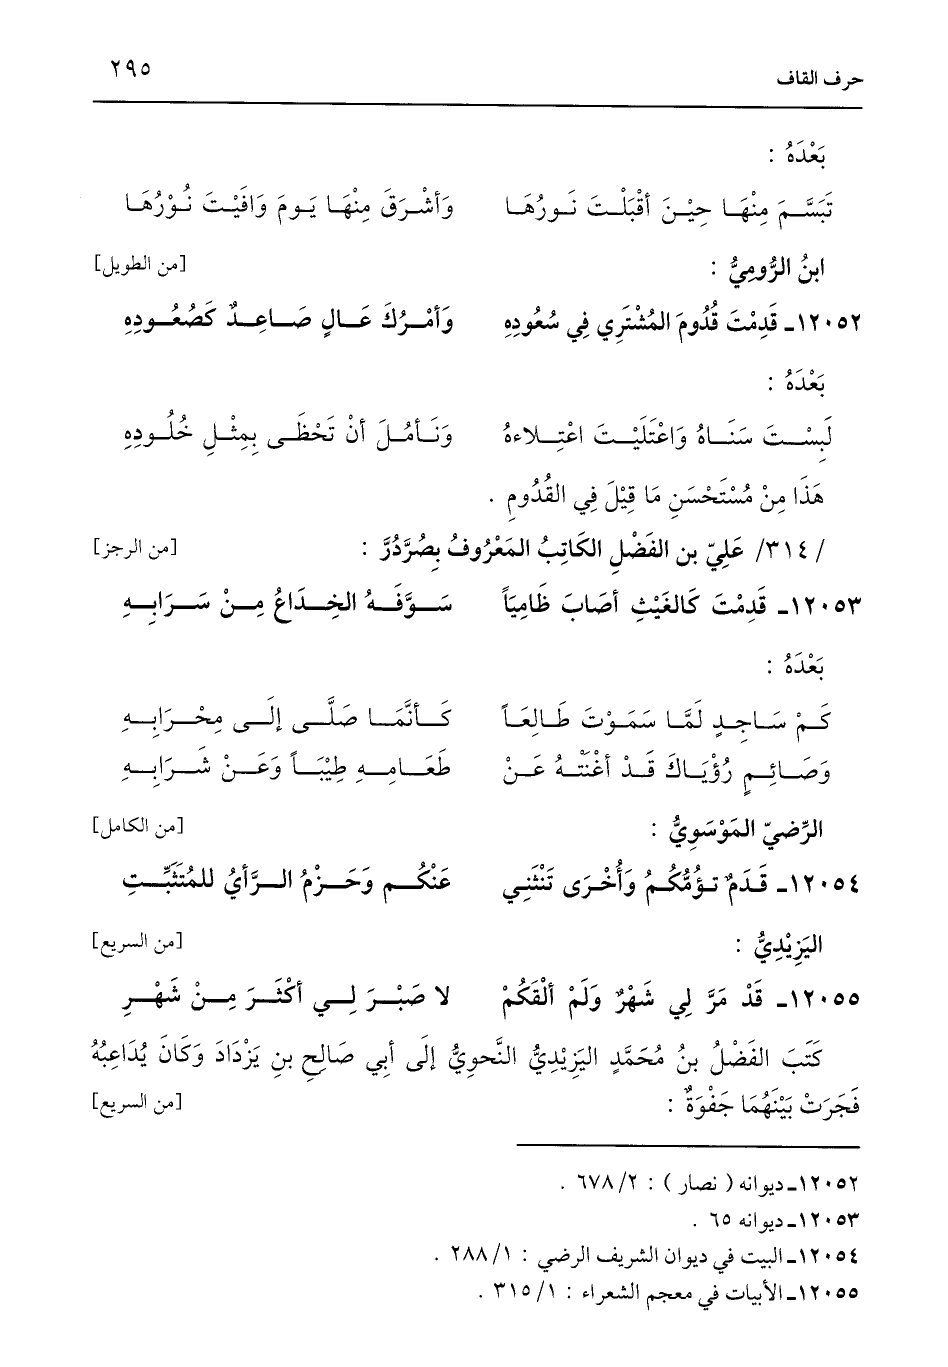 حرف القاف ٢٩٥
بَعْدَهُ :
تَبَسَّمَ مِنْهَا حِيْنَ أقْبَلْتَ نَورُهَا وَأشْرَقَ مِنْهَا يَومَ وَافَيْتَ نُوْرُهَا
ابنُ الرُّومِيُّ : [من الطويل]
١٢٠٥٢ـ قَدِمْتَ قُدُومَ المُشْتَرِي فِي سُعُودِهِ وَأمْرُكَ عَالٍ صَاعِدٌ كَصُعُودِهِ
بَعْدَهُ :
لَبِسْتَ سَنَاهُ وَاعْتَلَيْتَ اعْتِلاءهُ وَنَأمُلَ أنْ تَحْظَى بِمِثْلِ خُلُودِهِ
هَذَا مِنْ مُسْتَحْسَنِ مَا قِيْلَ فِي القُدُومِ .
/٣١٤/ عَلِيّ بن الفَضْلِ الكَاتِبُ المَعْرُوفُ بِصُرَّدُرَّ : [من الرجز]
١٢٠٥٣ـ قَدِمْتَ كَالغَيْثِ أصَابَ ظَامِيَاً سَوَّفَهُ الخِدَاعُ مِنْ سَرَابِهِ
بَعْدَهُ :
كَمْ سَاجِدٍ لَمَّا سَمَوْتَ طَالِعَاً كَأنَّمَا صَلَّى إلَى مِحْرَابِهِ
وَصَائِمٍ رُؤْيَاكَ قَدْ أغْنَتْهُ عَنْ طَعَامِهِ طِيْبَاً وَعَنْ شَرَابِهِ
الرِّضيّ المَوْسَوِيُّ : [من الكامل]
١٢٠٥٤ـ قَدَمٌ تؤُمُّكُمُ وَأُخْرَى تَنْثَنِي عَنْكُم وَحَزْمُ الرَّأيُ للمُتَثَبِّتِ
اليَزِيْدِيُّ : [من السريع]
١٢٠٥٥ـ قَدْ مَرَّ لِي شَهْرٌ وَلَمْ ألْقَكُمْ لا صَبْرَ لِي أكْثَرَ مِنْ شَهْرِ
كَتَبَ الفَضْلُ بنُ مُحَمَّدٍ اليَزِيْدِيُّ النَّحوِيُّ إلَى أبِي صَالِحٍ بنِ يَزْدَادَ وَكَانَ يُدَاعِبُهُ
فَجَرَتْ بَيْنَهُمَا جَفْوَةٌ : [من السريع]
١٢٠٥٢ـ ديوانه ( نصار ) : ٢/ ٦٧٨ .
١٢٠٥٣ـ ديوانه ٦٥ .
١٢٠٥٤ـ البيت في ديوان الشريف الرضي : ١/ ٢٨٨ .
١٢٠٥٥ـ الأبيات في معجم الشعراء : ١/ ٣١٥ .